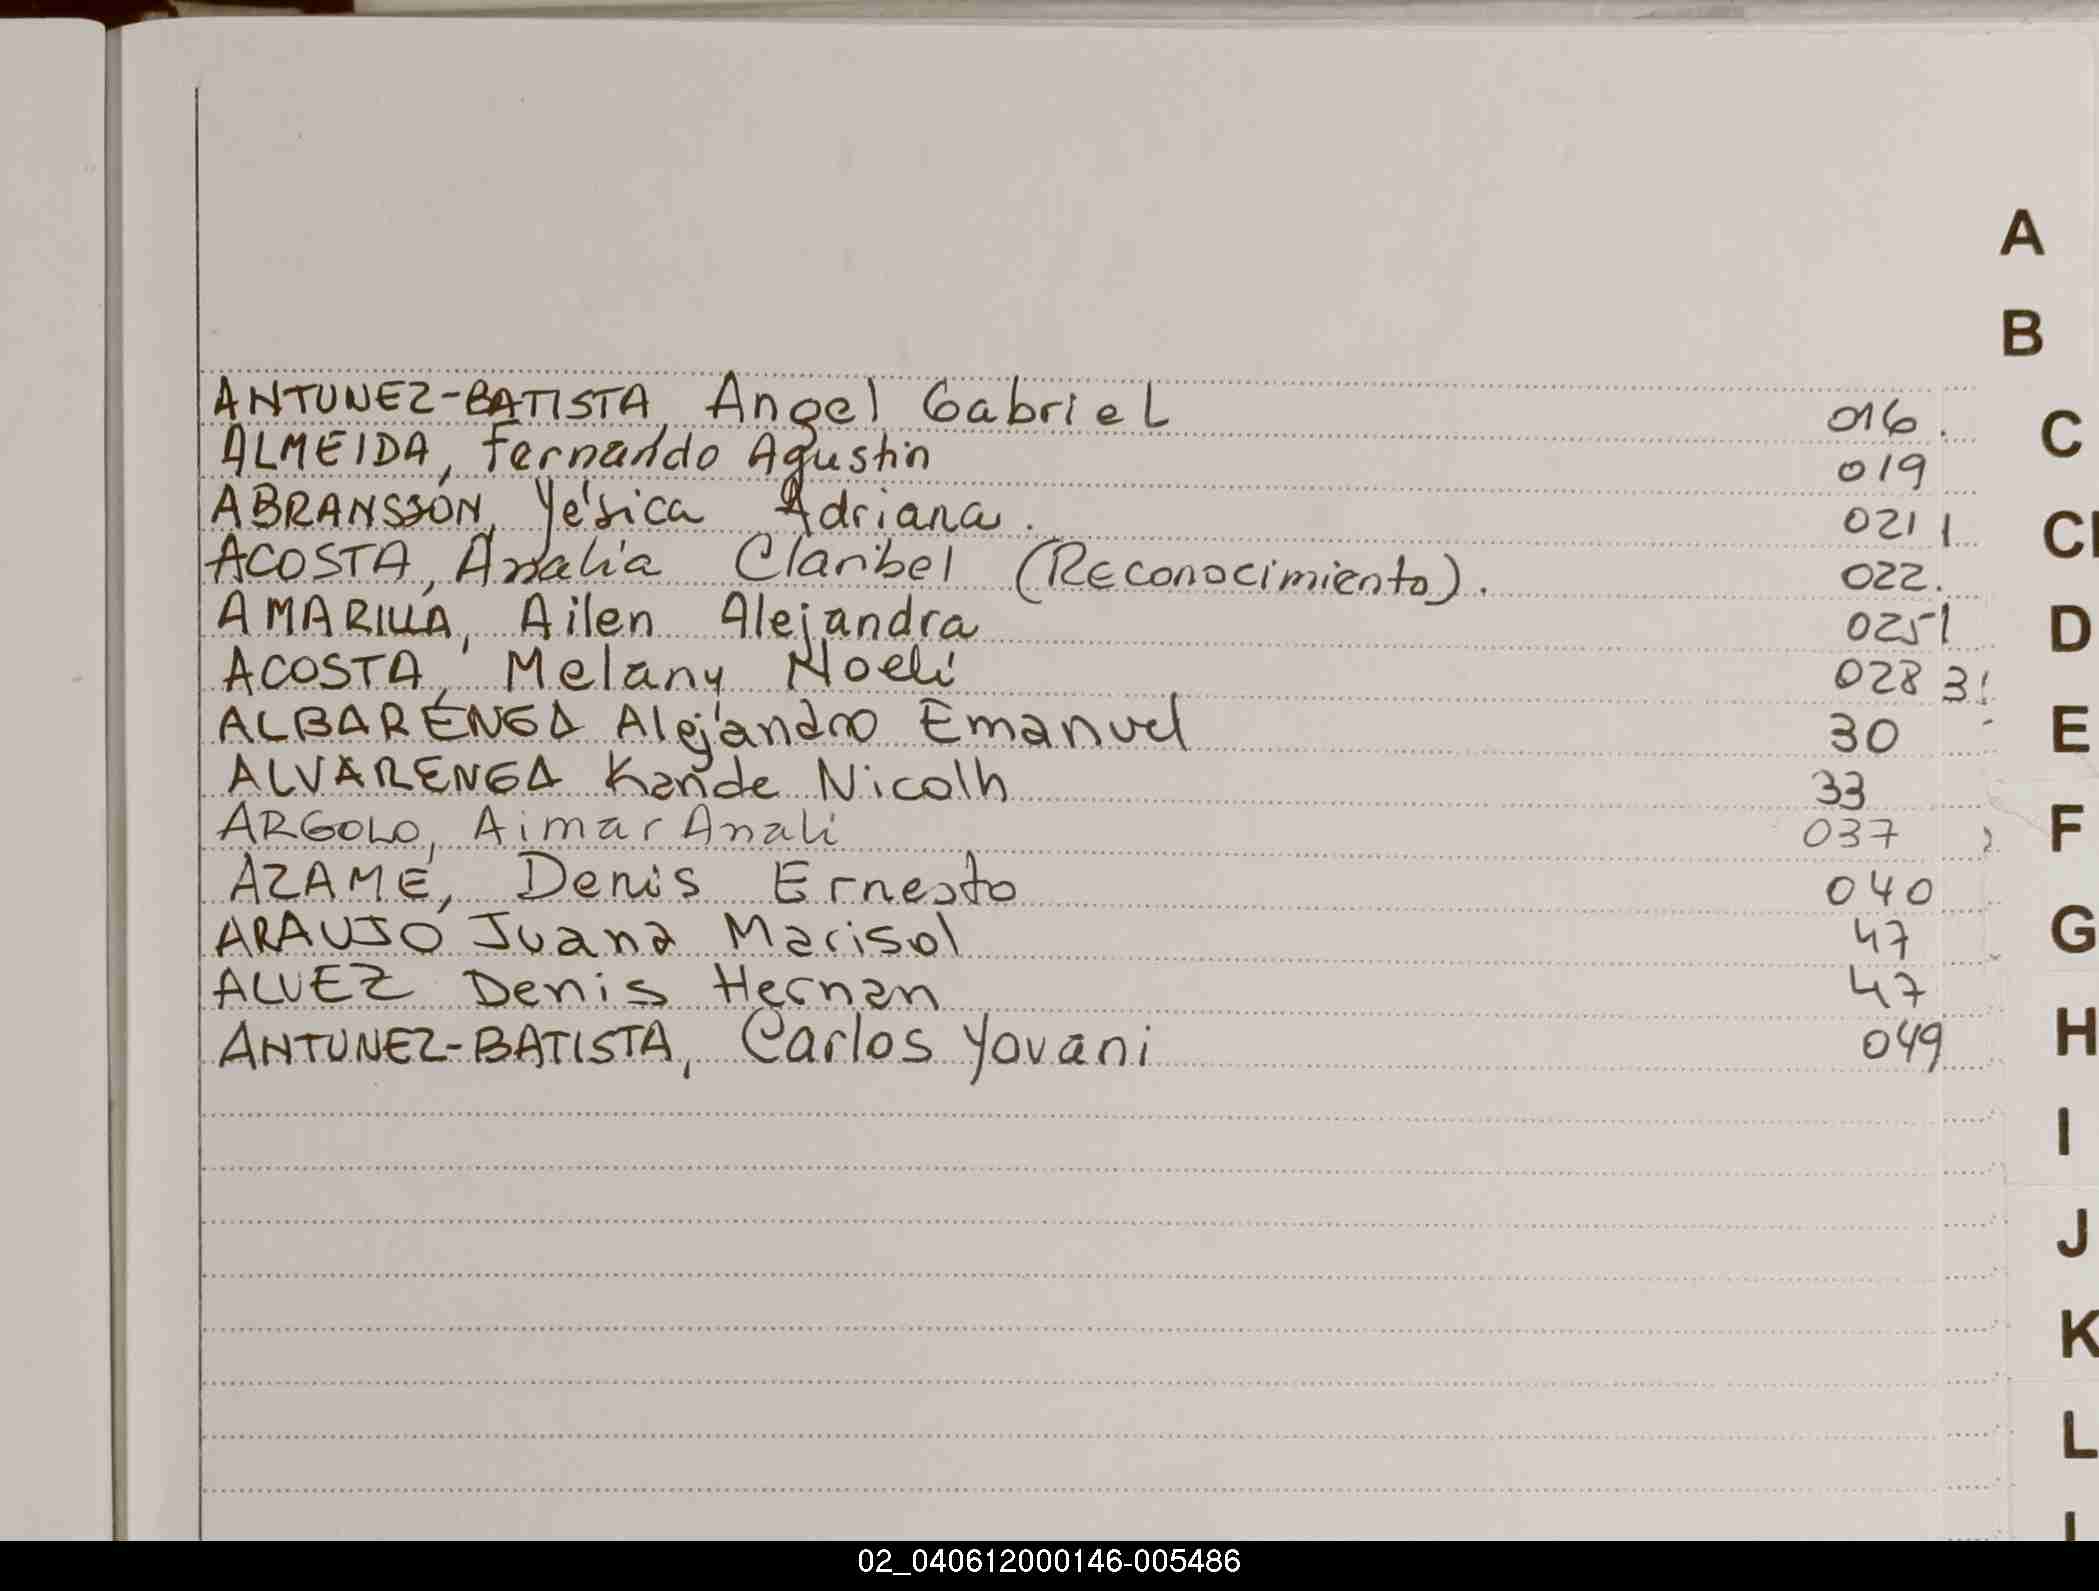 ANTUNEZ-BATISTA, Angel Gabriel 016.
ALMEIDA, Fernando Agustin 019
ABRANSSON, Yésica Adriana. 021
ACOSTA, Analia Claribel (Reconocimiento). 022.
AMARILLA, Ailen Alejandra 025
ACOSTA, Melany Noelí 028
ALBARENGA Alejandro Emanuel 30
ALVARENGA Kande Nicolh 33
ARGOLO, Aimar Anali 037
AZAME, Denis Ernesto 040
ARAUJO Juana Marisol 47
ALVEZ Denis Hernan 47
ANTUNEZ-BATISTA, Carlos Yovani 049
A
B
C
D
E
F
G
H
I
J
K
L
02_040612000146-005486